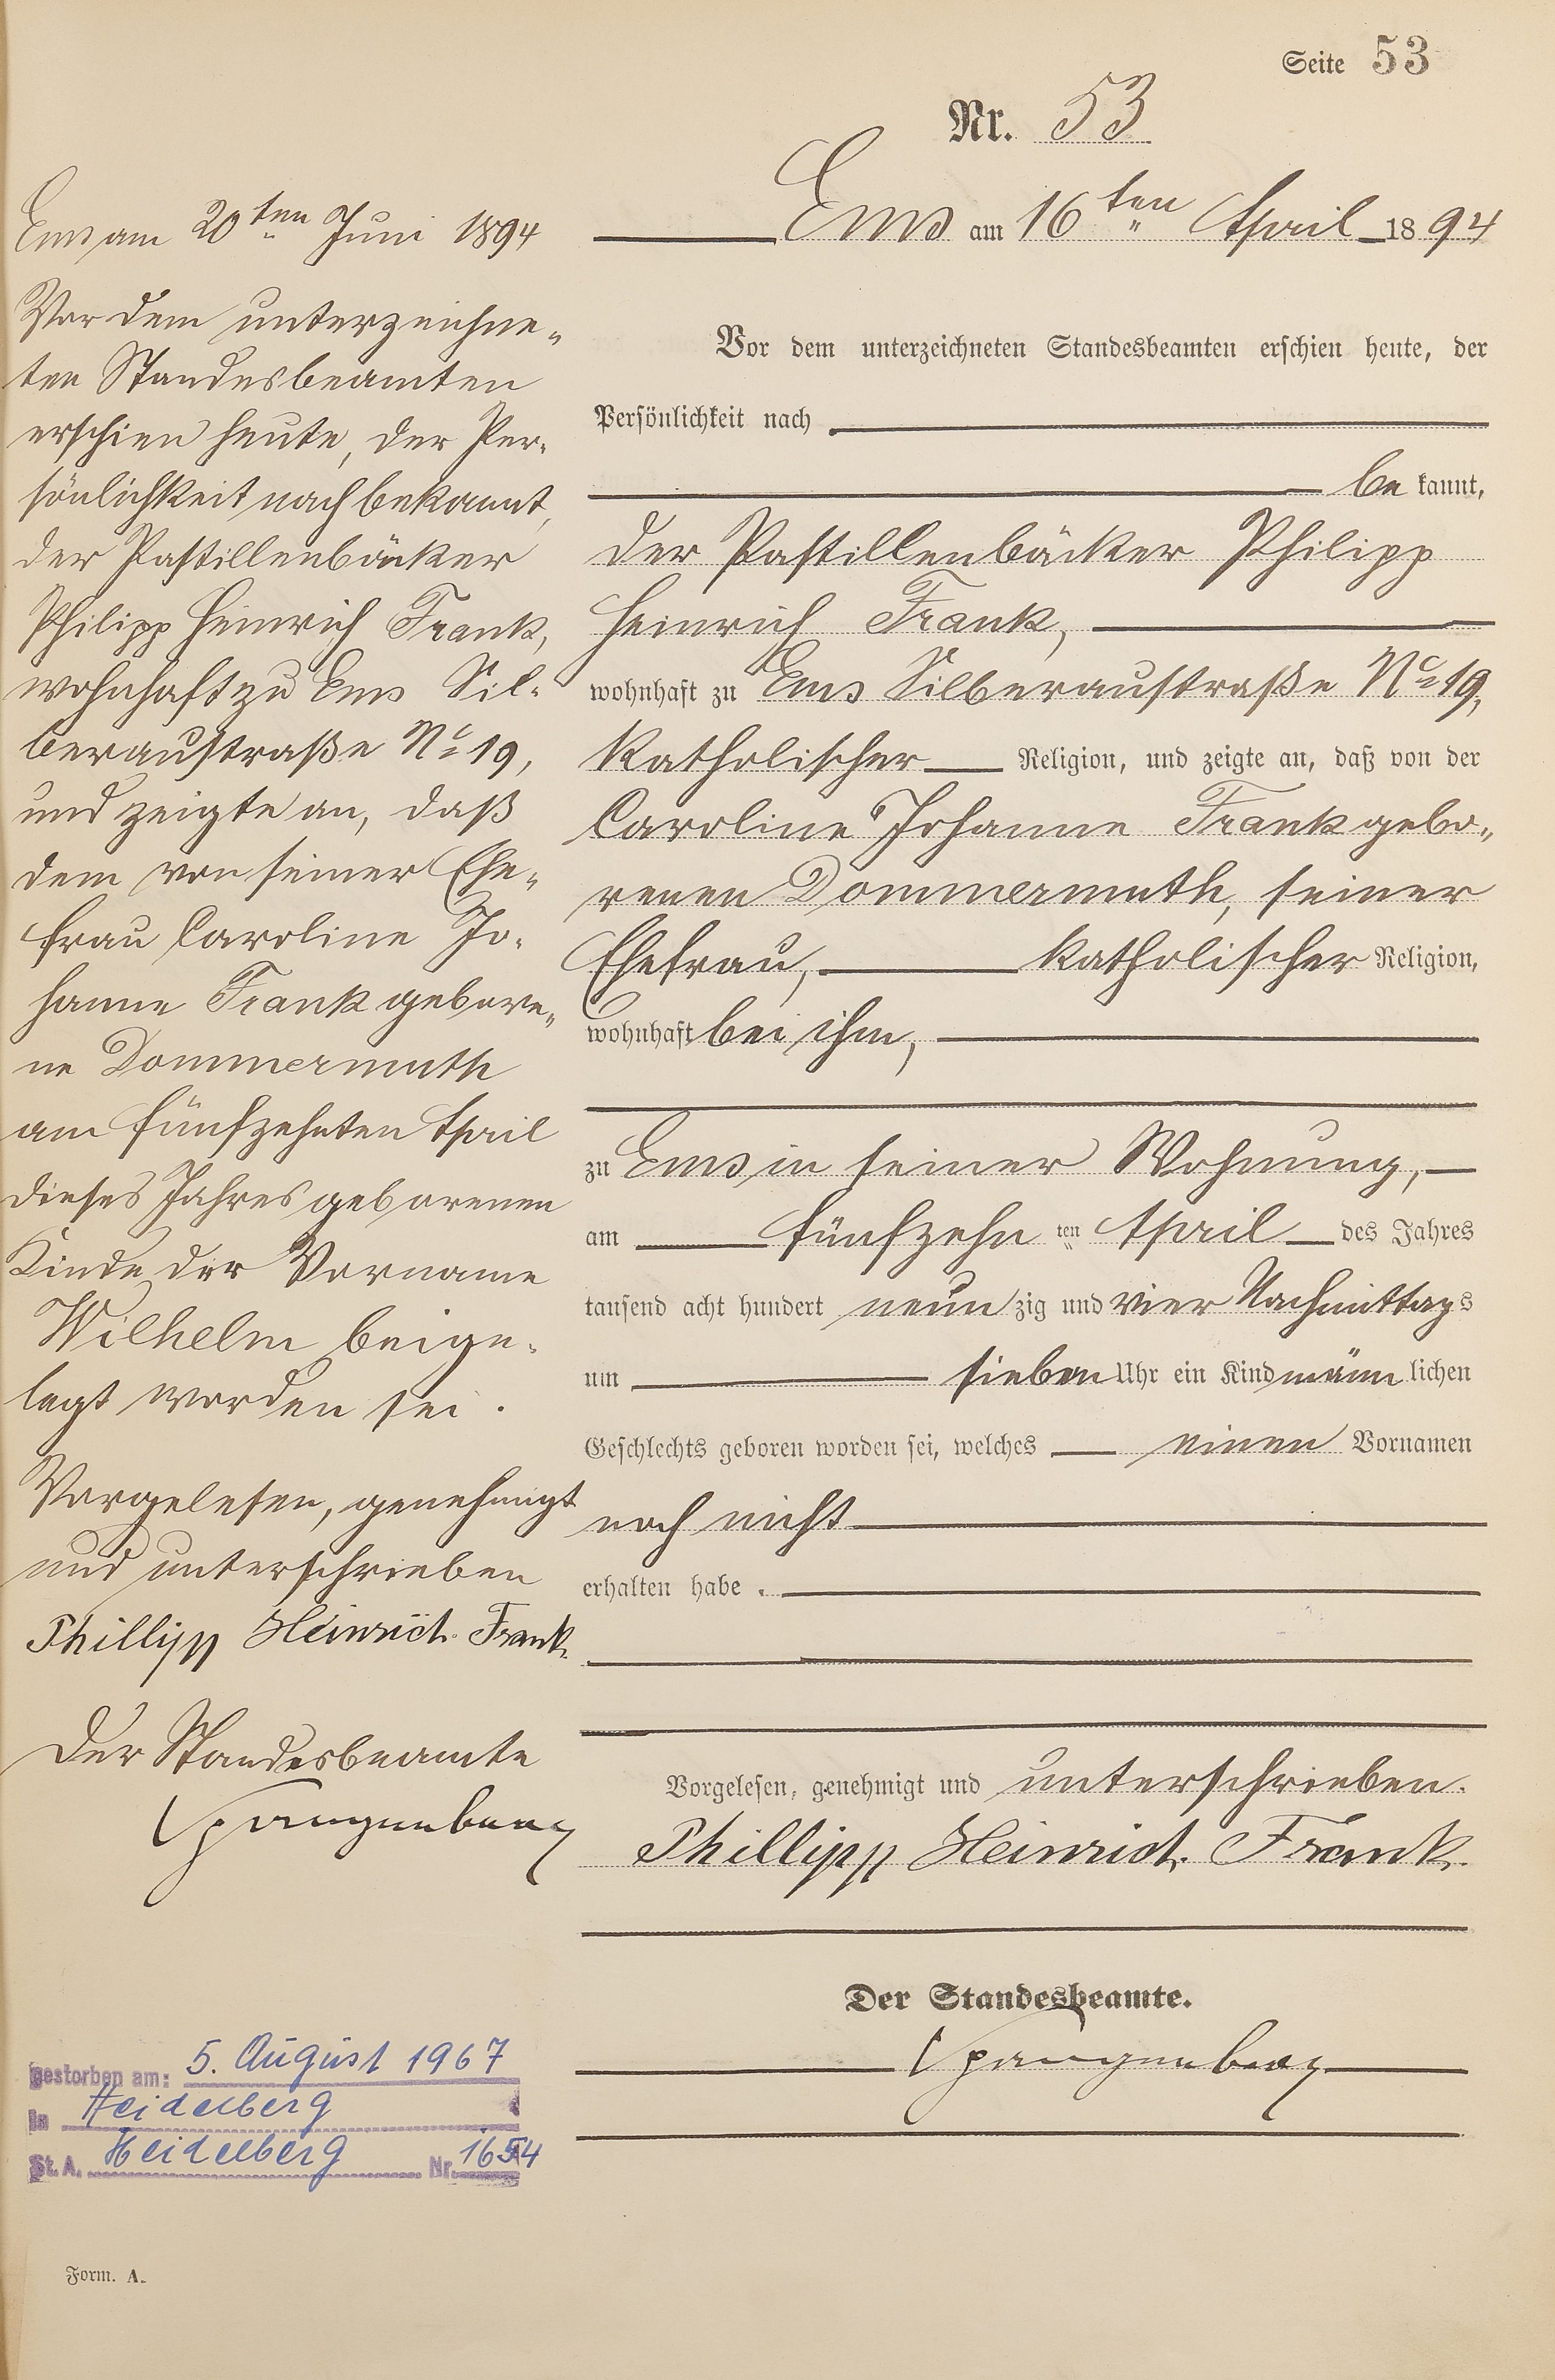 Seite 53
Nr. 53
Ems am 16ten April 1894
Vor dem unterzeichneten Standesbeamten erschien heute, der
Persönlichkeit nach
bekannt,
der Pastillenbäcker Philipp
Heinrich Frank,
wohnhaft zu Ems Silberaustraße No 19,
katholischer Religion, und zeigte an, daß von der
Caroline Johanne Frank gebo-
renen Dommermuth, seiner
Ehefrau, katholischer Religion,
wohnhaft bei ihm,
zu Ems in seiner Wohnung,
am fünfzehn ten April des Jahres
tausend acht hundert neunzig und vier Nachmittags
um sieben Uhr ein Kind männlichen
Geschlechts geboren worden sei, welches einen Vornamen
noch nicht
erhalten habe.
Vorgelesen, genehmigt und unterschrieben.
Phillipp Heinrich Frank.
Der Standesbeamte.
Spangenberg
Ems am 20ten Juni 1894
Vor dem unterzeichne-
ten Standesbeamten
erschien heute, der Per-
sönlichkeit nach bekannt,
der Pastillenbäcker
Philipp Heinrich Frank,
wohnhaft zu Ems Sil-
beraustraße No 19,
und zeigte an, daß
dem von seiner Ehe-
frau Caroline Jo-
hanne Frank gebore-
ne Dommermuth
am fünfzehnten April
dieses Jahres geborenen
Kinde der Vorname
Wilhelm beige-
legt worden sei.
Vorgelesen, genehmigt
und unterschrieben
Phillipp Heinrich Frank.
Der Standesbeamte
Spangenberg
gestorben am: 5. August 1967
in Heidelberg
St. A. Heidelberg Nr. 1654
Form. A.